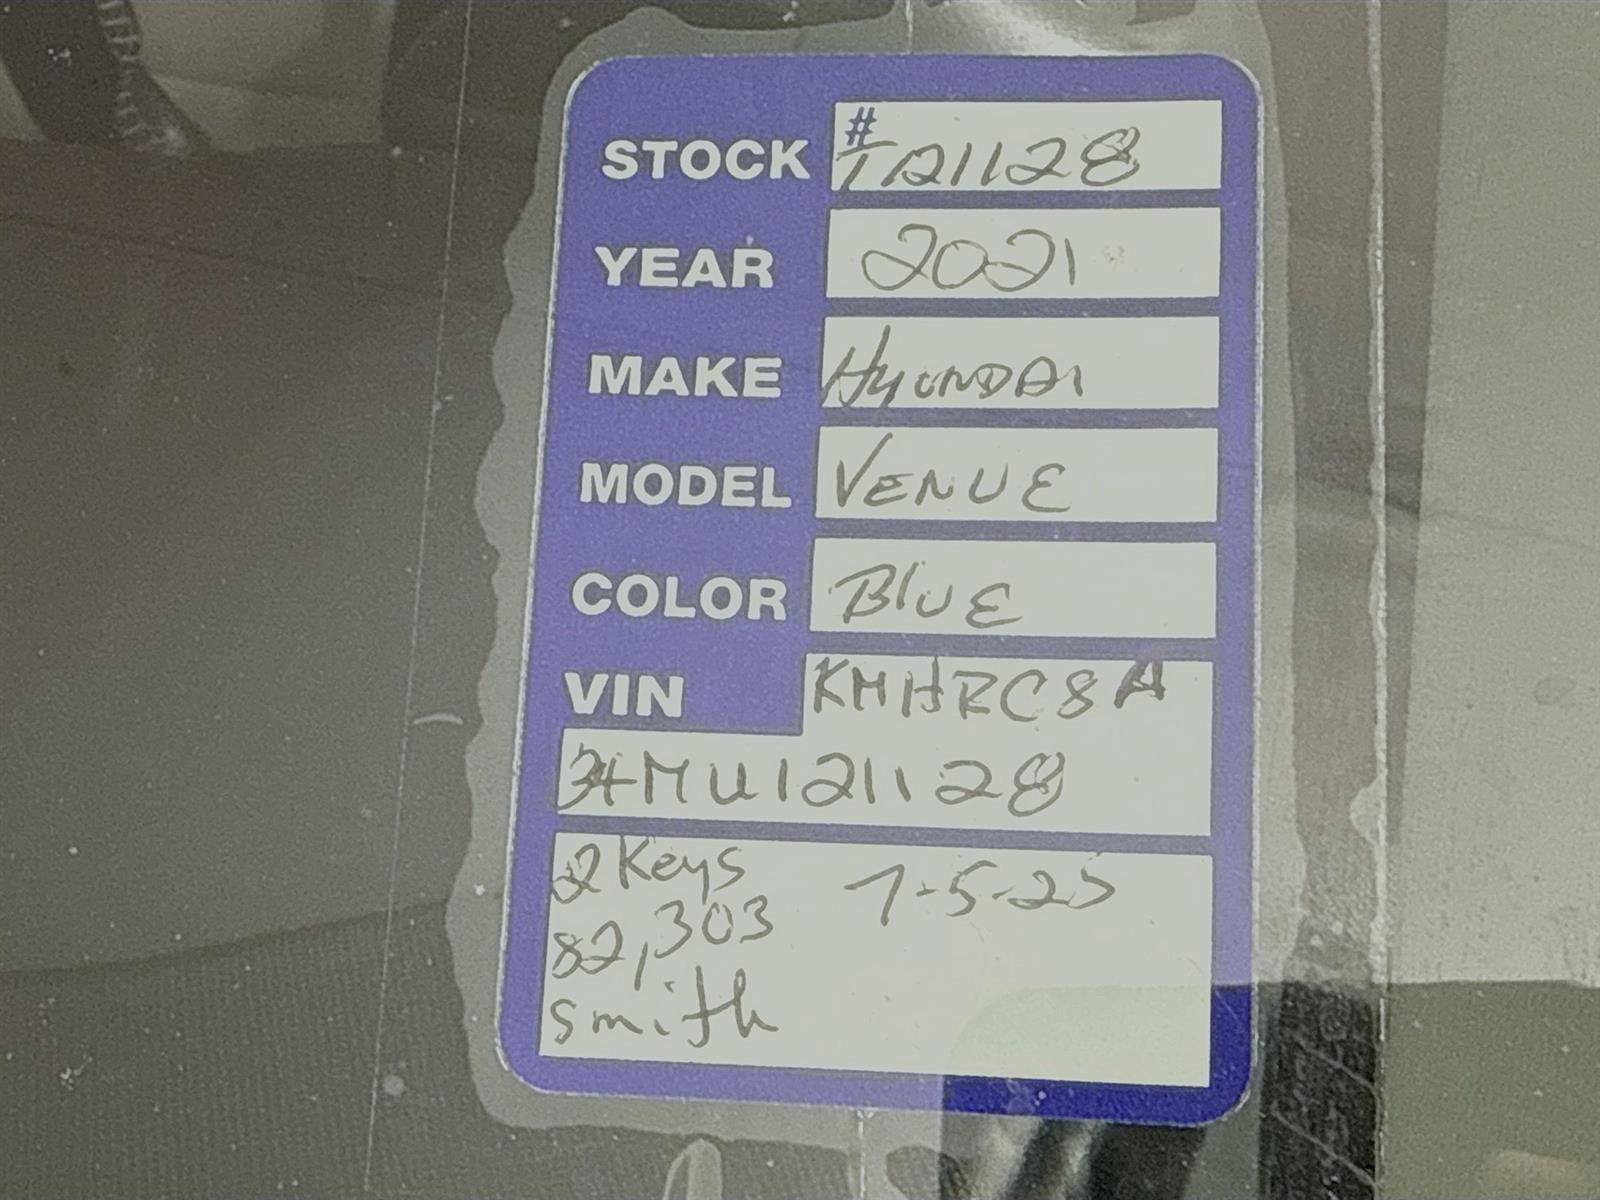 STOCK #T21128
YEAR 2021
MAKE HYUNDAI
MODEL VENUE
COLOR BlUE
VIN KMHRC8A
34MU121128
2 Keys 7-5-25
82,303
smith